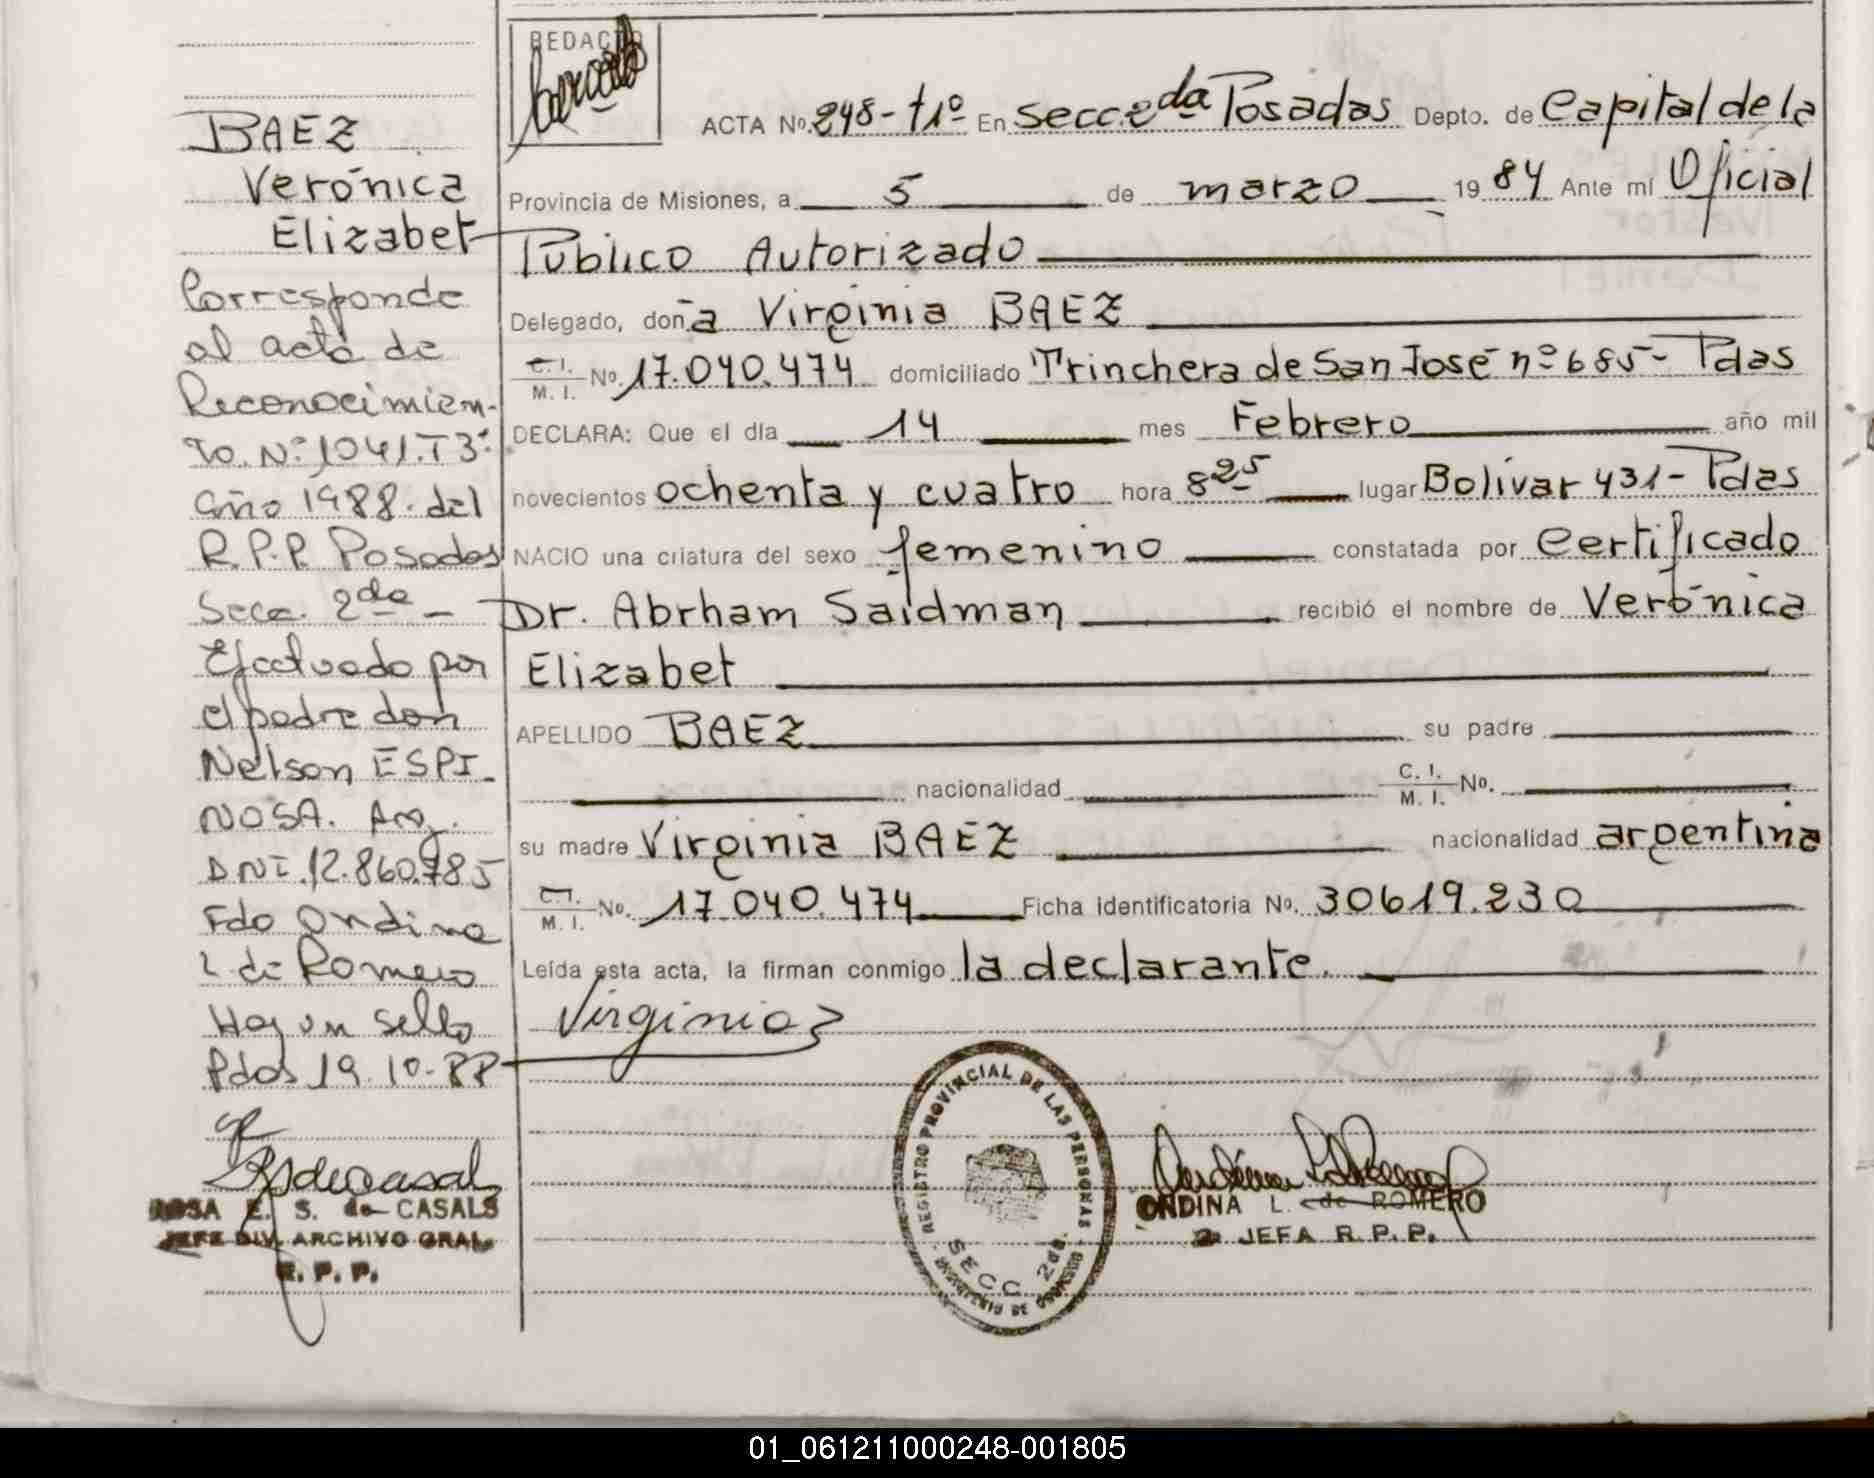 BAEZ
Verónica
Elizabet
Corresponde
al acta de
Reconocimien-
to. Nº 1041. T3º
año 1988. del
R.P.P. Posadas
Secc. 2da -
Efectuado por
el padre don
Nelson ESPI-
NOSA. Arg.
DNI. 12.860.785
Fdo Ondina
L. de Romero
Hay un sello
Pdas 19.10-88
ROSA E. S. de CASALS
JEFE DIV. ARCHIVO GRAL.
R. P. P.
REDACTO
ACTA No. 248-t1º En Secc 2da Posadas Depto. de Capital de la
Provincia de Misiones, a 5 de marzo 19 84 Ante mí Oficial
Público Autorizado
Delegado, don a Virginia BAEZ
C. I. M. I. No. 17.040.474 domiciliado Trinchera de San José nº 685- Pdas
DECLARA: Que el día 14 mes Febrero año mil
novecientos ochenta y cuatro hora 8 25 lugar Bolívar 431- Pdas
NACIO una criatura del sexo femenino constatada por Certificado
Dr. Abrham Saidman recibió el nombre de Verónica
Elizabet
APELLIDO BAEZ su padre
nacionalidad C. I. M. I. No.
su madre Virginia BAEZ nacionalidad argentina
C. I. M. I. No. 17.040.474 Ficha identificatoria No. 30619.230
Leída esta acta, la firman conmigo la declarante.
Virginia
REGISTRO PROVINCIAL DE LAS PERSONAS
SECC 2da.
ONDINA L. de ROMERO
JEFA R. P. P.
01_061211000248-001805